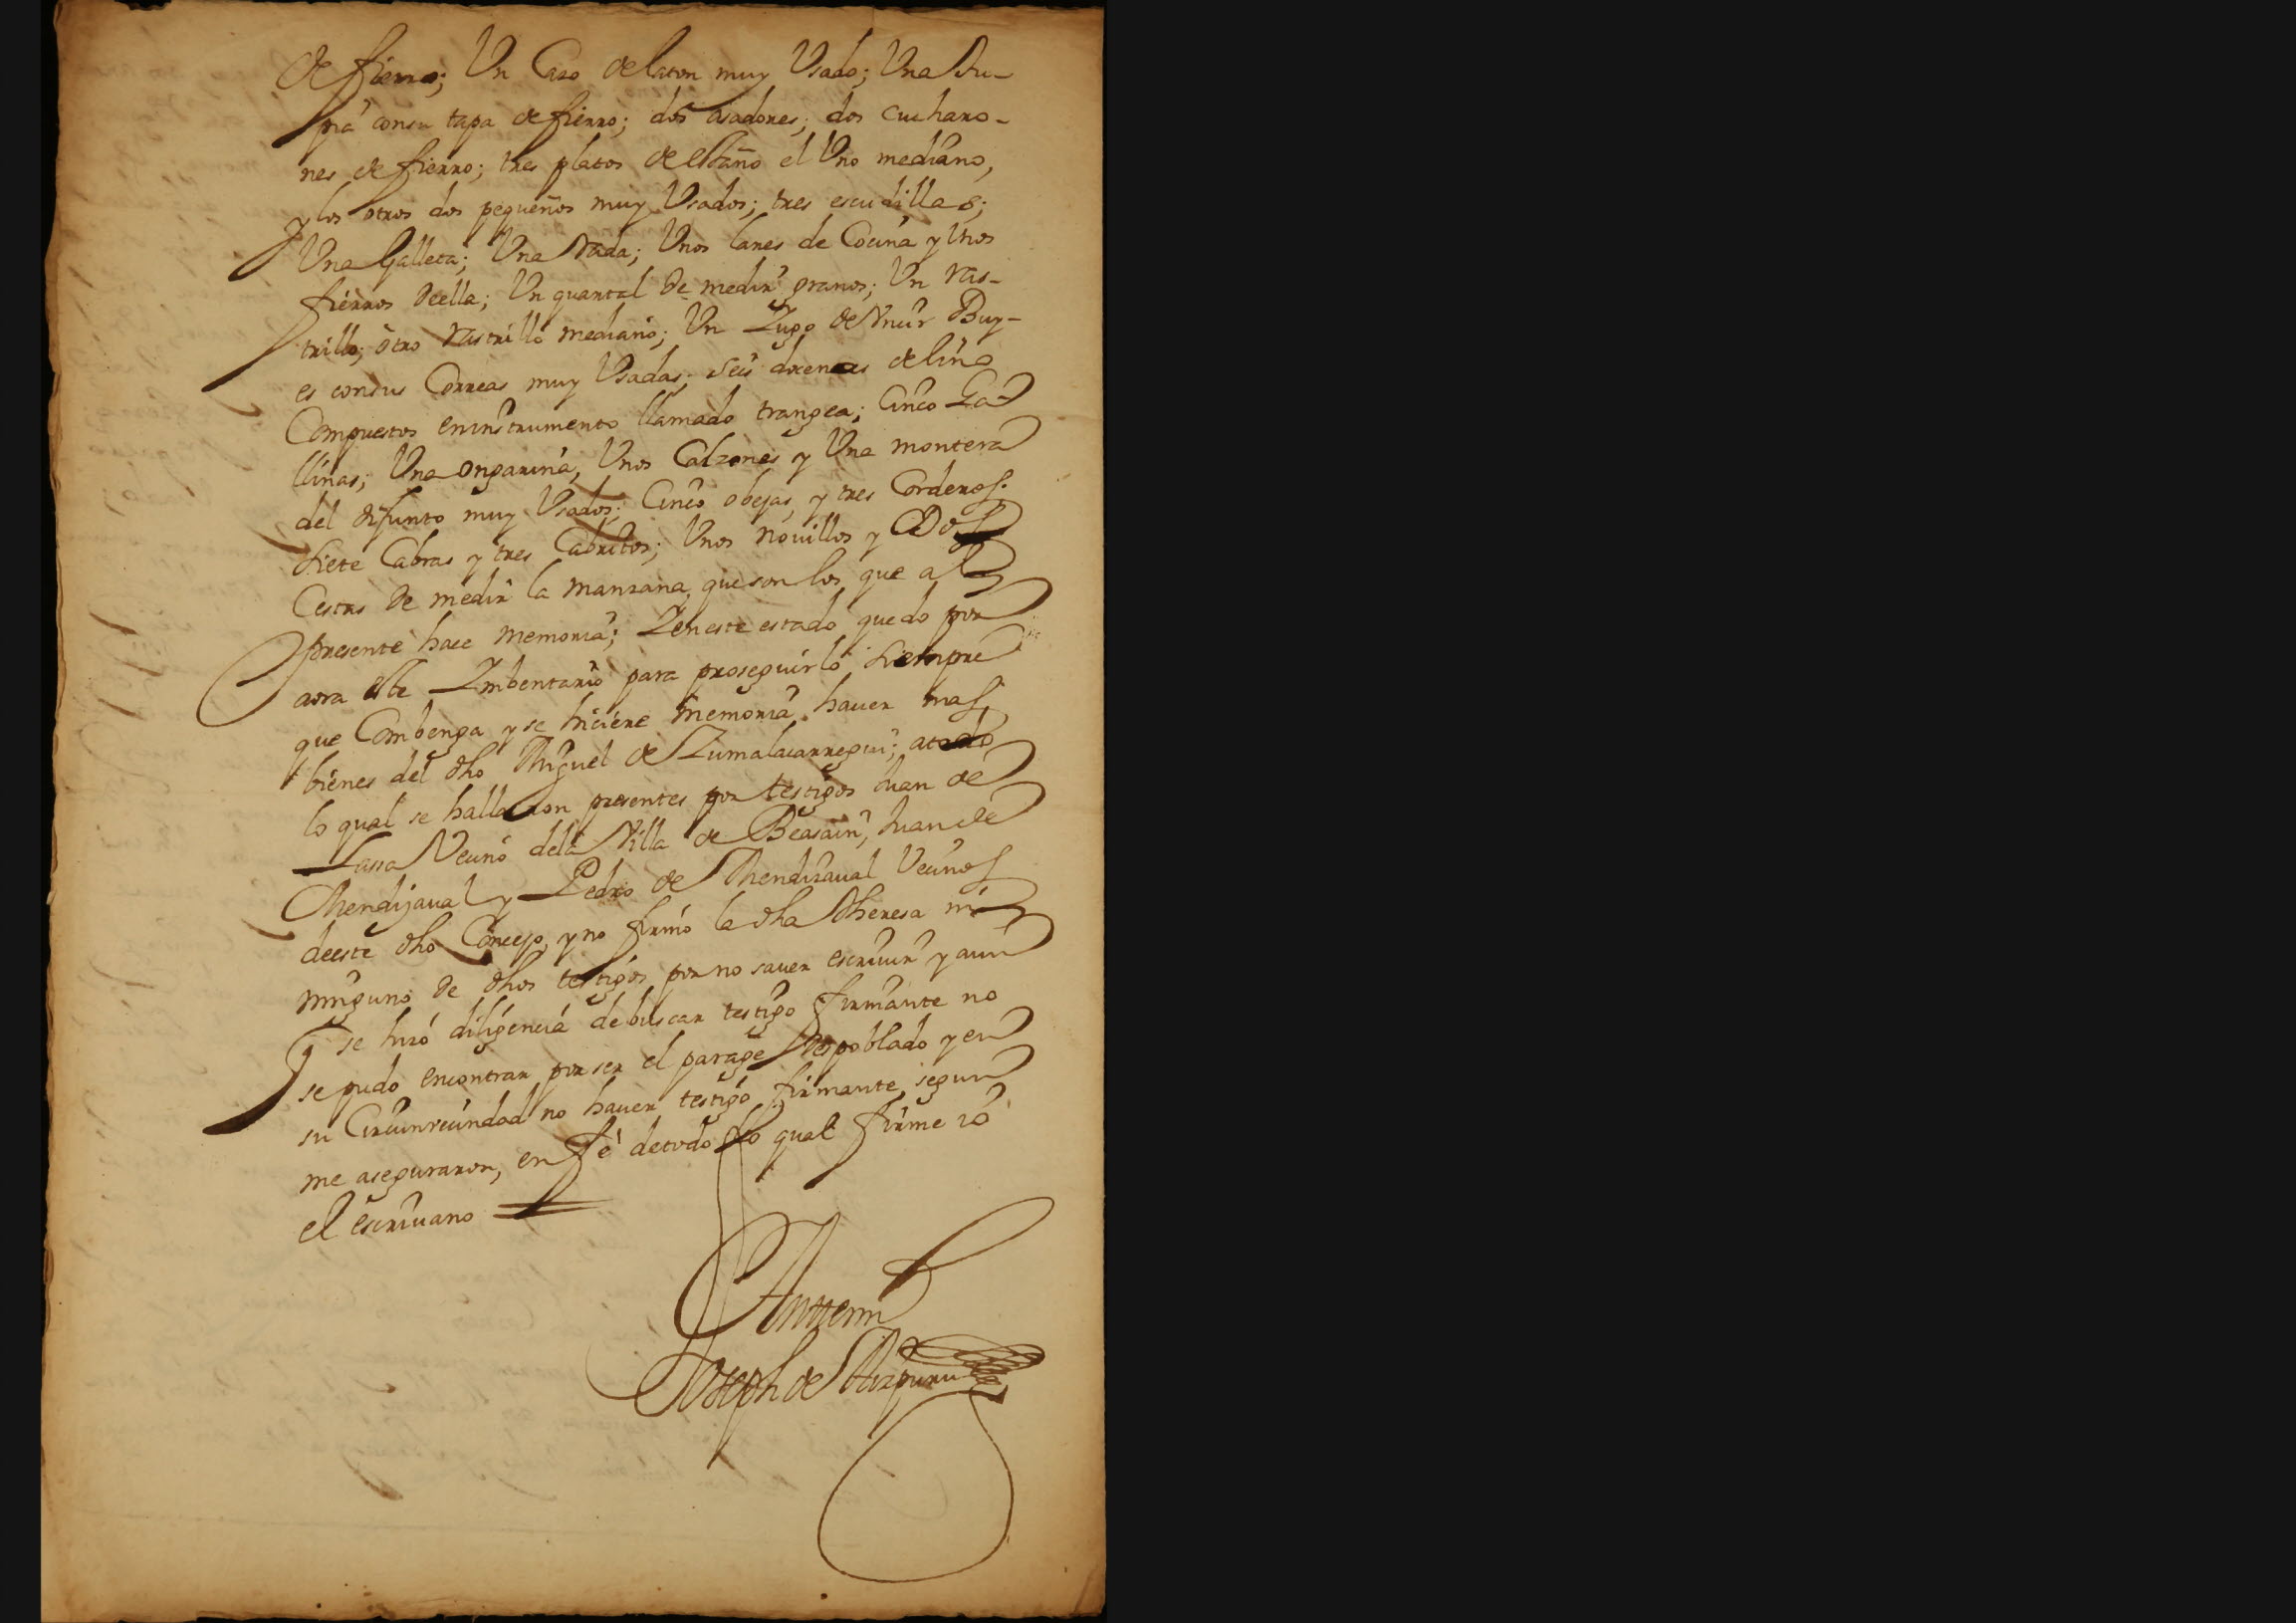 de fierro; Un Cazo de laton muy Usado; Una Su-
pia consu tapa de fierro; dos asadores; dos cucharo-
nes de fierro; tres platos de estaño el Uno mediano,
y los otros dos pequeños muy Usados; tres escudillas;
Una Galleta; Una Rada; Unos lares de Cocina y Unos
fierros deella; Un quartal de medir granos; Un ras-
trillo; otro rastrillo mediano; Un Yugo de Vncir Buy-
es consus Correas muy Usadas; seis docenas de lino
Compuestos eninstrumento llamado trangea; Cinco Ga-
llinas; Una ongarina, Unos Calzones y Una montera
del difunto muy Usados; Cinco obejas, y tres Corderos;
siete Cabras y tres Cabritos; Unos novillos y Dos
Cestas de medir la manzana, queson los que al
presente hace memoria; Yeneste estado quedo por
aora este Ymbentario para proseguirlo siempre
que Combenga y se hiciere memoria haver mas
bienes del dho Miguel de Zumalacarregui; atodo
lo qual se hallaron presentes por testigos Juan de
Lasa Vecino dela Villa de Beasain, Juan de
Mendizaval y Pedro de Mendizaval Vecinos
deeste dho Concejo, y no firmó la dha Theresa ni
ninguno de dhos testigos, por no saver escrivir y aun
q se hizó diligencia debuscar testigo firmante no
se pudo encontrar por ser el parage Despoblado y en
su Circunvecindad no haver testigo firmante, segun
me aseguraron, en fé detodo lo qual firme io
el escrivano
Anttemi
Joseph de Aizpuru